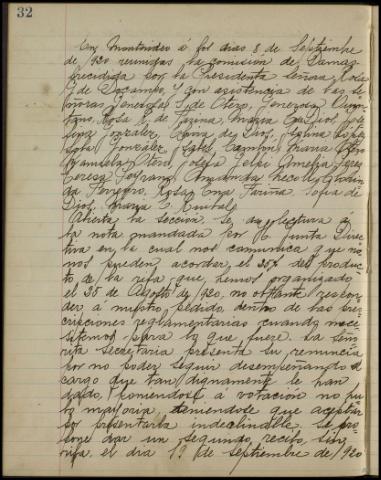 32
En Montevideo á los dias 8 de Septiembre
de 920 reunidas la comisión de Damas
precidida por la Presidenta señora Rosa
G de Docampo, y con asistencia de las se
ñoras Generosa S. de Otero, Generosa Quin
tans, Rosa R. de Fariña, María C. Dios, Jose
fina González, Elvira de Dios,
González, Isabel María
Manuela Otero, Josefa Amelia Perez
Teresa Amanda
da Ferreiro, Rosa Ema Fariña, Sofia de
Dios, María C.
Abierta la sección se da lectura á
la nota mandada por la Junta Direc
tiva en la cual nos comunica que no
nos pueden acordar el 25% del produc
to de la rifa que hemos organizado
el 25 de Agosto de 920, no obstante respon
der á nuestro pedido dentro de las pres
cripciones reglamentarias cuando nece
sitemos para lo que fuere. La seño
rita Secretaria presenta su renuncia
por no poder seguir desempeñando el
cargo que tan dignamente le han
dado, poniendose á votación no hu
bo mayoria teniendose que aceptar
por presentarla indeclinable. Se pro
pone dar un segundo recibo sin
rifa el dia 19 de Septiembre de 1920